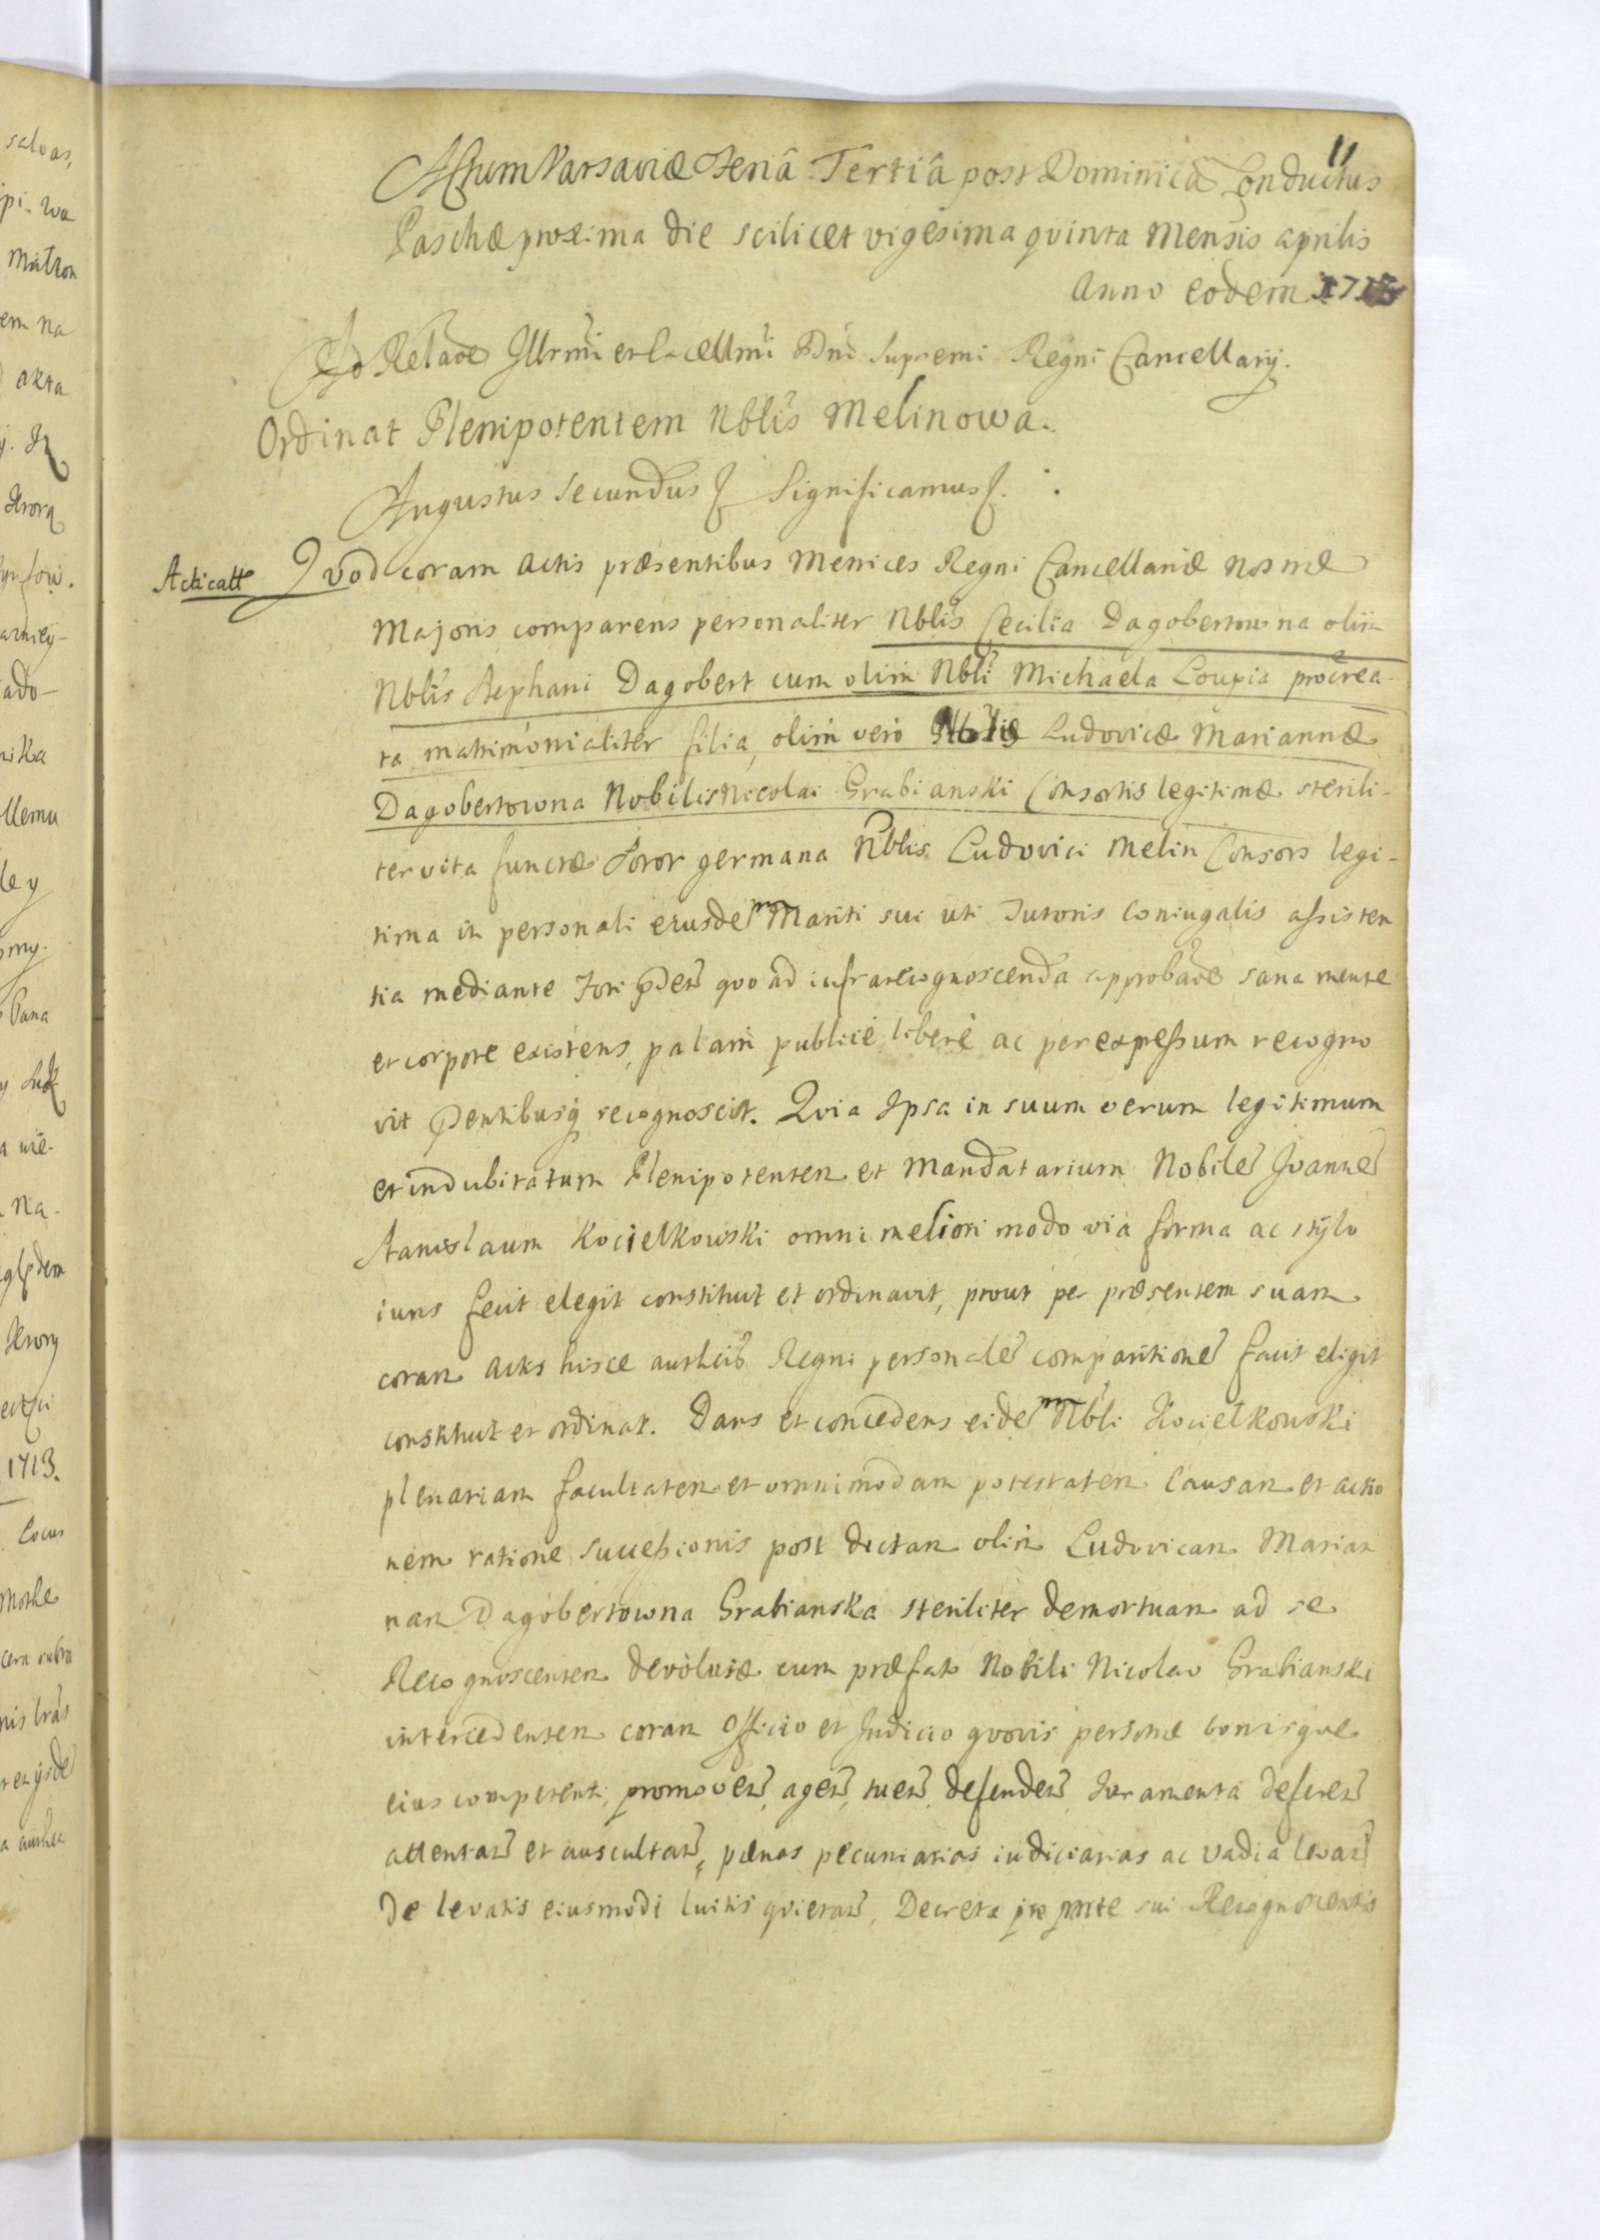 11
Actum Varsaviæ Feriâ Tertiâ post Dominicã Conductus
Paschæ proxima die scilicet vigesima qvinta Mensis aprilis
Anno eodem 1713
Ad Relãoẽ Illrm̃i et Excellm̃i Dñi Supremi Regni Cancellarÿ.
Ordinat Plenipotentem Nblĩs Melinowa.
Augustus Secundus Significamus
Acticatt Qvod coram Actis præsentibus Metrices Regni Cancellariæ Nos træ
Majoris comparens personaliter Nblĩs Cecilia Dagobertowna olim
Nblĩs Stephani Dagobert cum olim Nblĩ Michaela Loupia procrea-
ta matrimonialiter filia, olim vero Ludovicæ Mariannæ
Dagobertowna Nobilis Nicolai Grabianski Consortis legitimæ sterili-
ter vita functæ Soror germana Nblis Ludovici Melin Consors legi-
tima in personali eiusdem Mariti sui uti Tutoris Coniugalis assisten
tia mediante qvo ad infrarecognoscenda approbãoẽ sana mente
et corpore existens, palam publicè liberè ac per expressum recogno
vit Pentibusq recognoscit. Qvia Ipsa in suum verum legitimum
et indubitatum Plenipotentem et Mandatarium Nobilẽ Joannẽ
Stanislaum Kocielkowski omni meliori modo via forma ac stÿlo
iuris fecit elegit constituit et ordinavit, prout per præsentem suam
coram Actis hisce authcis Regni personalẽ comparitionẽ facit eligit
constituit et ordinat. Dans et concedens eidem Nbli Kocielkowski
plenariam facultatem et omnimodam potestatem Causam et actio
nem ratione successionis post dictam olim Ludovicam Marian
nam Dagobertowna Grabianska steriliter demortuam ad se
Recognoscentem devolutæ cum præfato Nobili Nicolao Grabianski
intercedentem coram Officio et Judicio qvovis personæ bonisqve
eius competenti, promovere, agere, tueri, defendere, Juramenta deferere
attentare et auscultare, pænas pecuniarias iudiciarias ac vadia levare
De levatis eiusmodi luitis qvietare, Decreta pro parte sui Recognoscentis